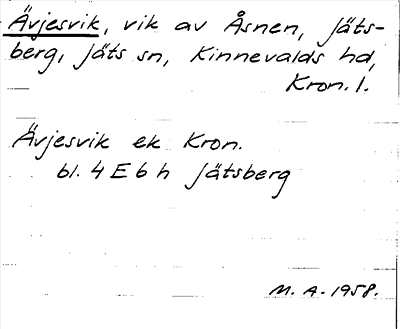 Ävjesvik, vik av Åsnen, Jäts-
berg, Jäts sn, Kinnevalds hd,
Kron. l.
Ävjesvik ek Kron.
bl. 4 E 6 h Jätsberg
M. A. 1958.